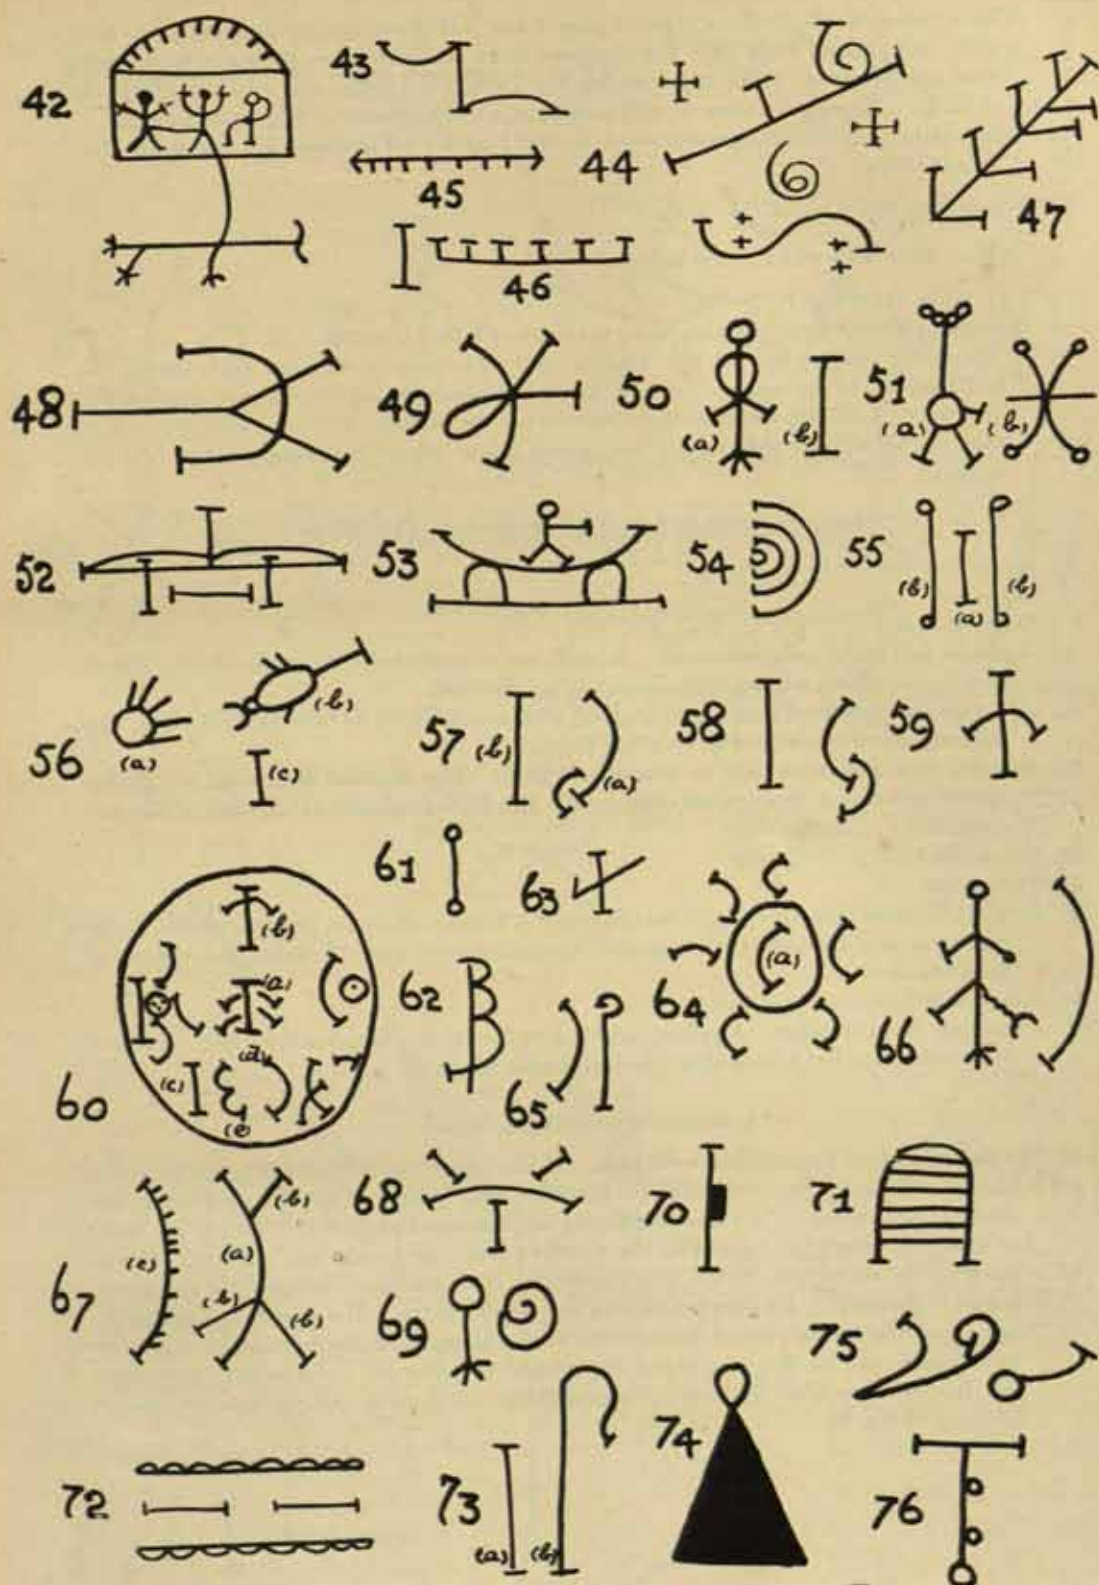 42
43
44
45
46
47
48
49
50
(a)
(b)
51
(a)
(b)
52
53
54
55
(b)
(a)
(b)
56
(a)
(b)
(c)
57
(b)
(a)
58
59
60
(b)
(a)
(d)
(c)
(e)
61
62
63
64
(a)
65
66
67
(c)
(a)
(b)
(b)
(b)
68
69
70
71
72
73
(a)
(b)
74
75
76